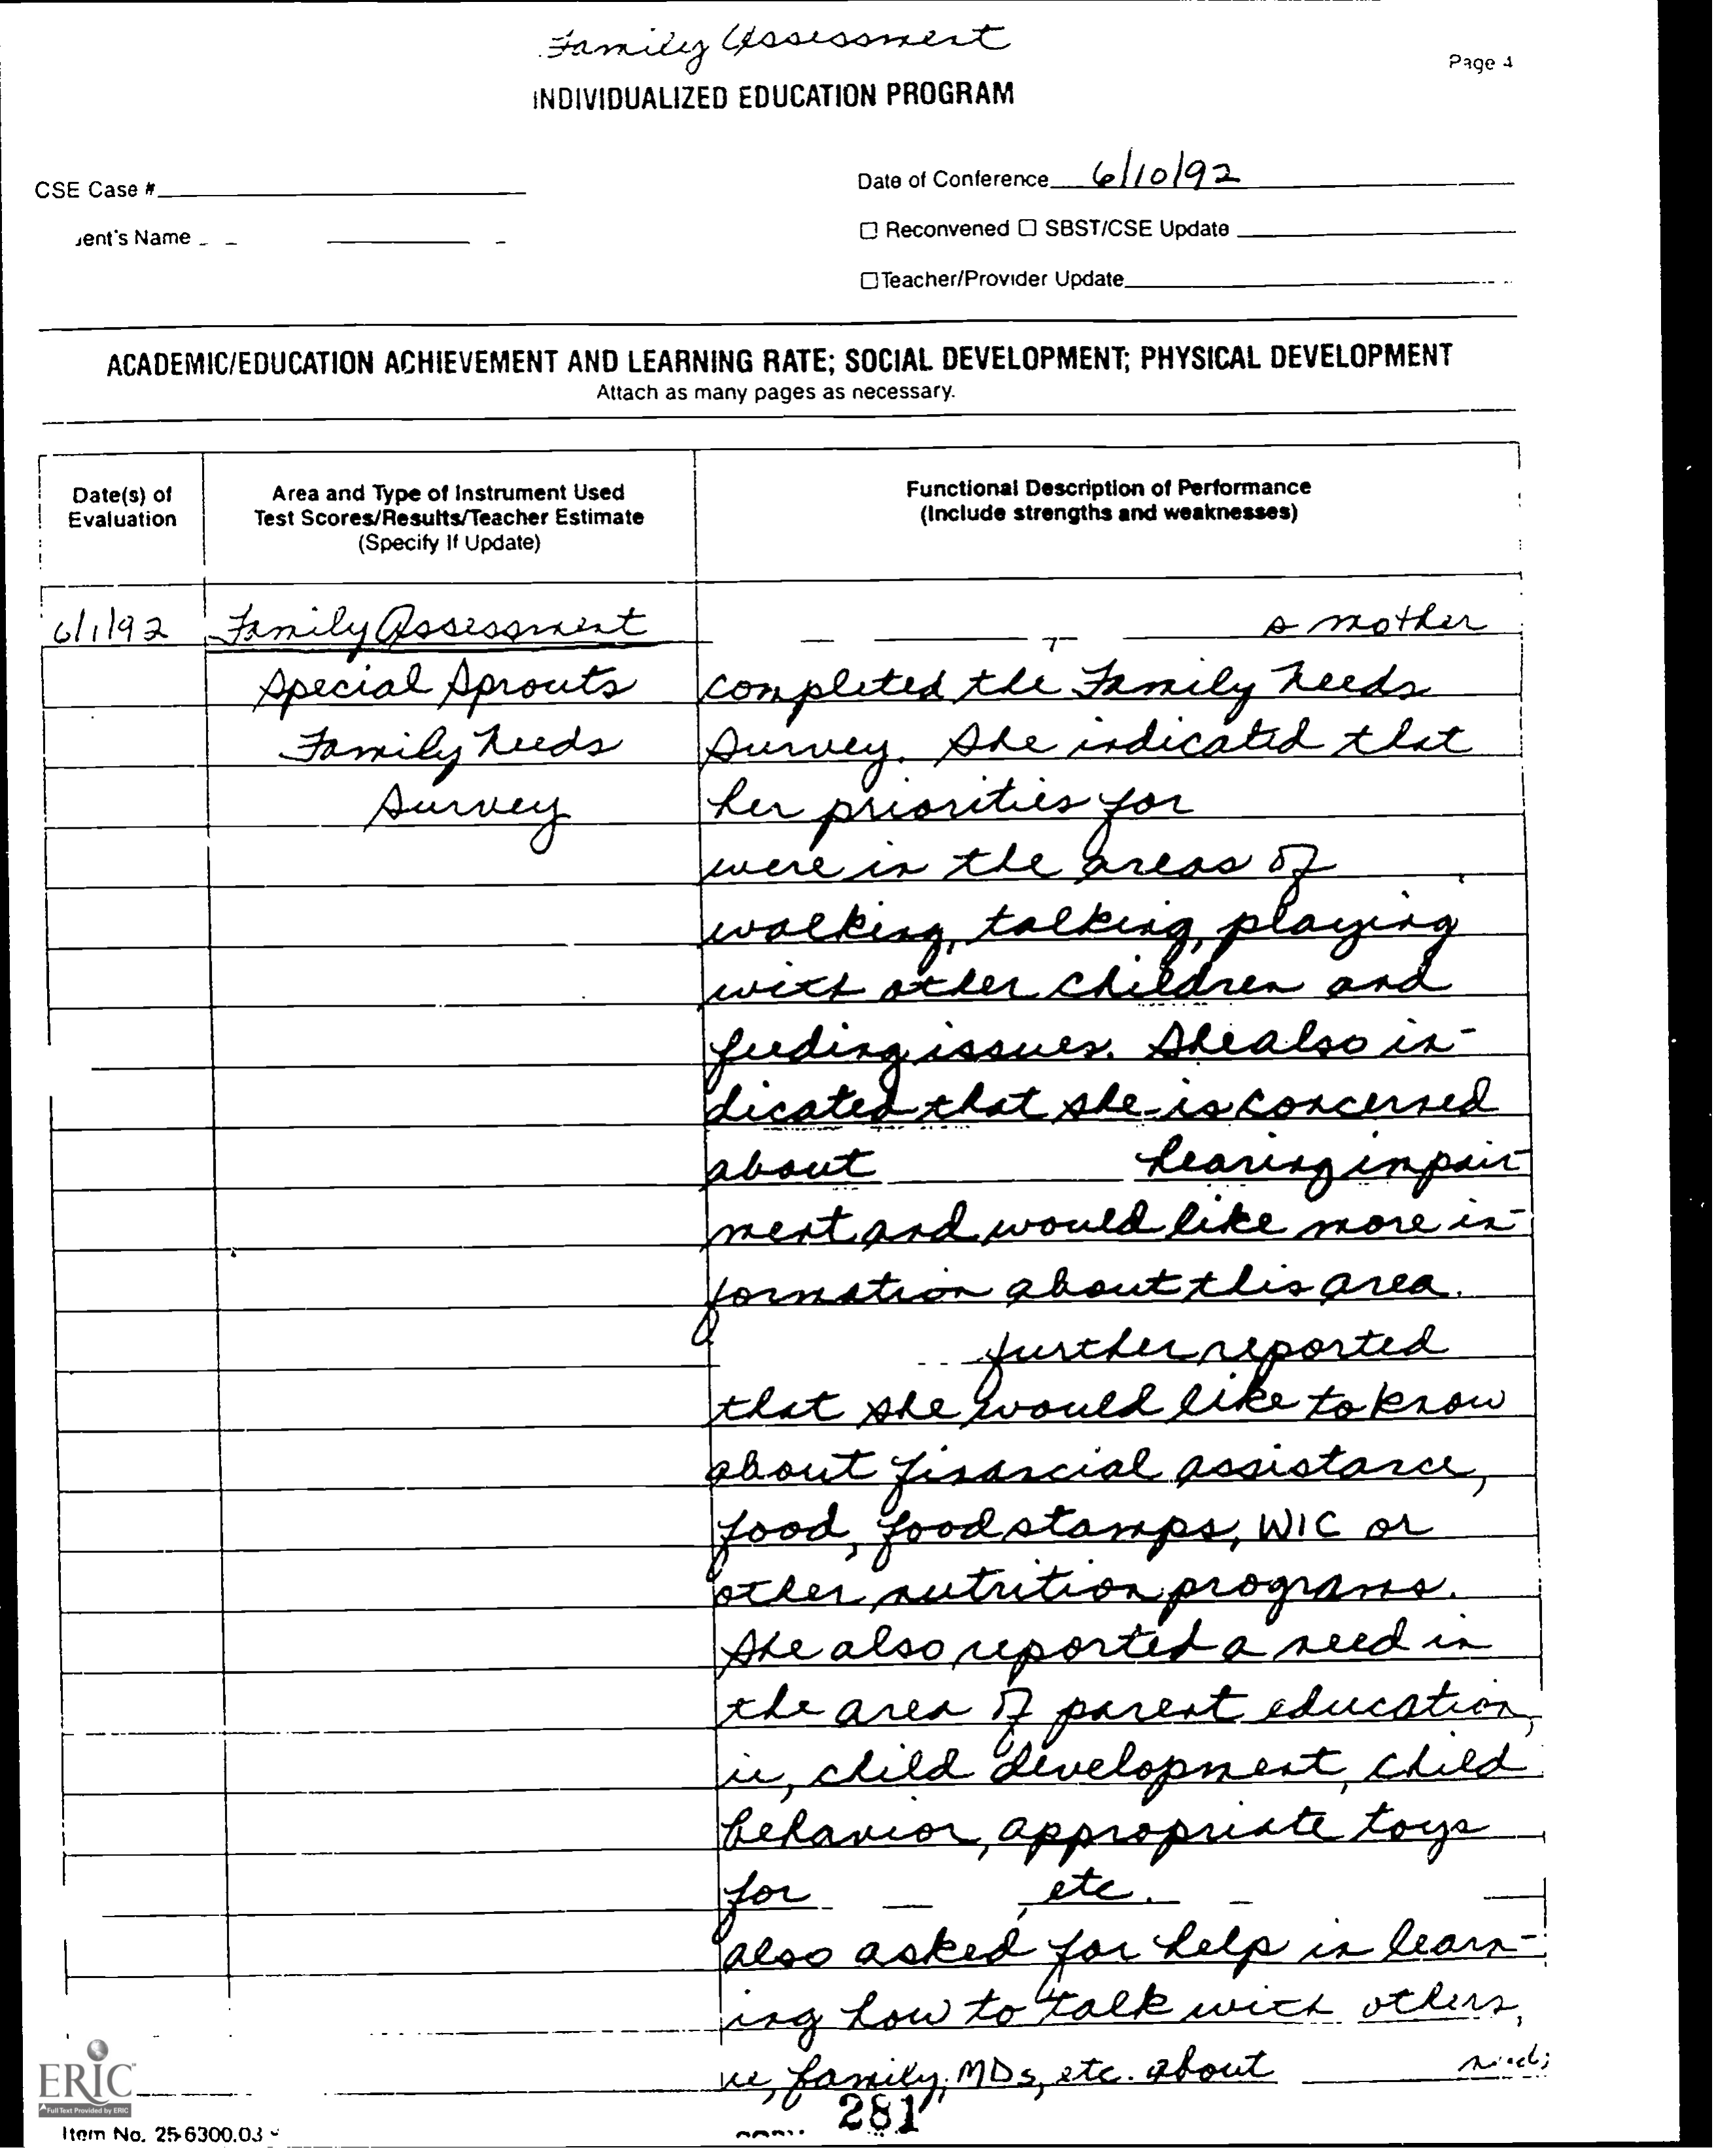 Family Assessment
Page 4
INDIVIDUALIZED EDUCATION PROGRAM
CSE Case #
Date of Conference 6/10/92
ent's Name
☐ Reconvened ☐ SBST/CSE Update
☐ Teacher/Provider Update
ACADEMIC/EDUCATION ACHIEVEMENT AND LEARNING RATE; SOCIAL DEVELOPMENT; PHYSICAL DEVELOPMENT
Attach as many pages as necessary.
Date(s) of
Evaluation
Area and Type of Instrument Used
Test Scores/Results/Teacher Estimate
(Specify If Update)
Functional Description of Performance
(Include strengths and weaknesses)
6/1/92
Family Assessment
Special Sprouts
Family Needs
Survey
s mother
completed the Family Needs
Survey. She indicated that
her priorities for
were in the areas of
walking, talking, playing
with other children and
feeding issues. She also in-
dicated that she is concerned
about hearing impair-
ment and would like more in-
formation about this area.
further reported
that she would like to know
about financial assistance,
food, food stamps, WIC or
other nutrition programs.
She also reported a need in
the area of parent education,
ie, child development, child
behavior, appropriate toys
for , etc.
also asked for help in learn-
ing how to talk with others,
ie, family, MDs, etc. about
ERIC
Full Text Provided by ERIC
281
Item No. 25-6300.03